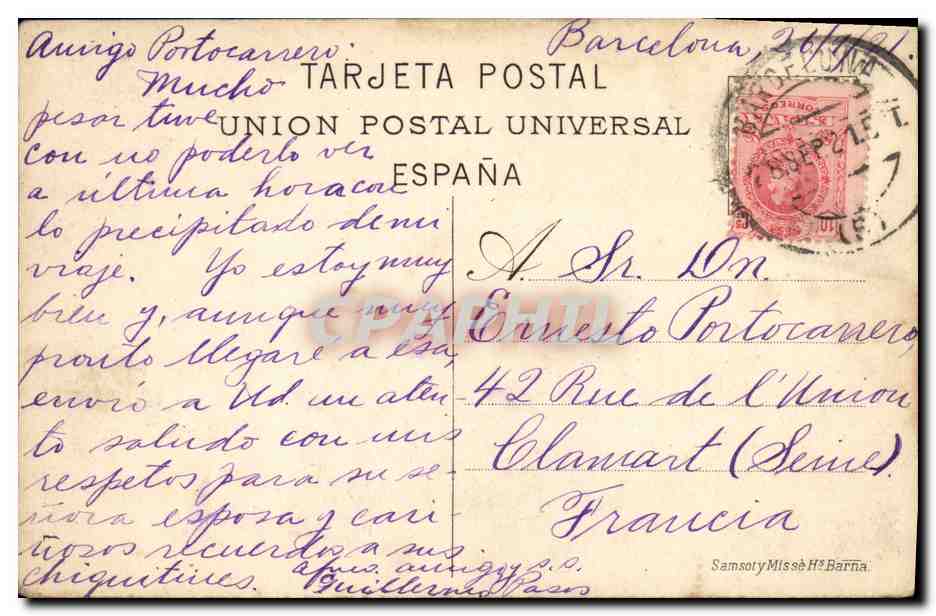 Barcelona,
Amigo Portocarrero:
TARJETA POSTAL
UNION POSTAL UNIVERSAL
ESPAÑA
Mucho
pesar tuve
con no poderlo ver
a última hora con
lo precipitado de mi
viaje. Yo estoy muy
bien y, aunque muy
pronto llegaré a esa,
envío a Ud. un aten-
to saludo con mis
respetos para su se-
ñora esposa y cari-
ñosos recuerdos a sus
chiquitines.
amigo y s.s.
Guillermo Pasos
BARCELONA
8 SEP 21
CORREOS
10
A. Sr. Dn.
Ernesto Portocarrero,
42 Rue de l'Union
Clamart (Seine).
Francia
Samsot y Missé Hs Barña.
CPAPHIL